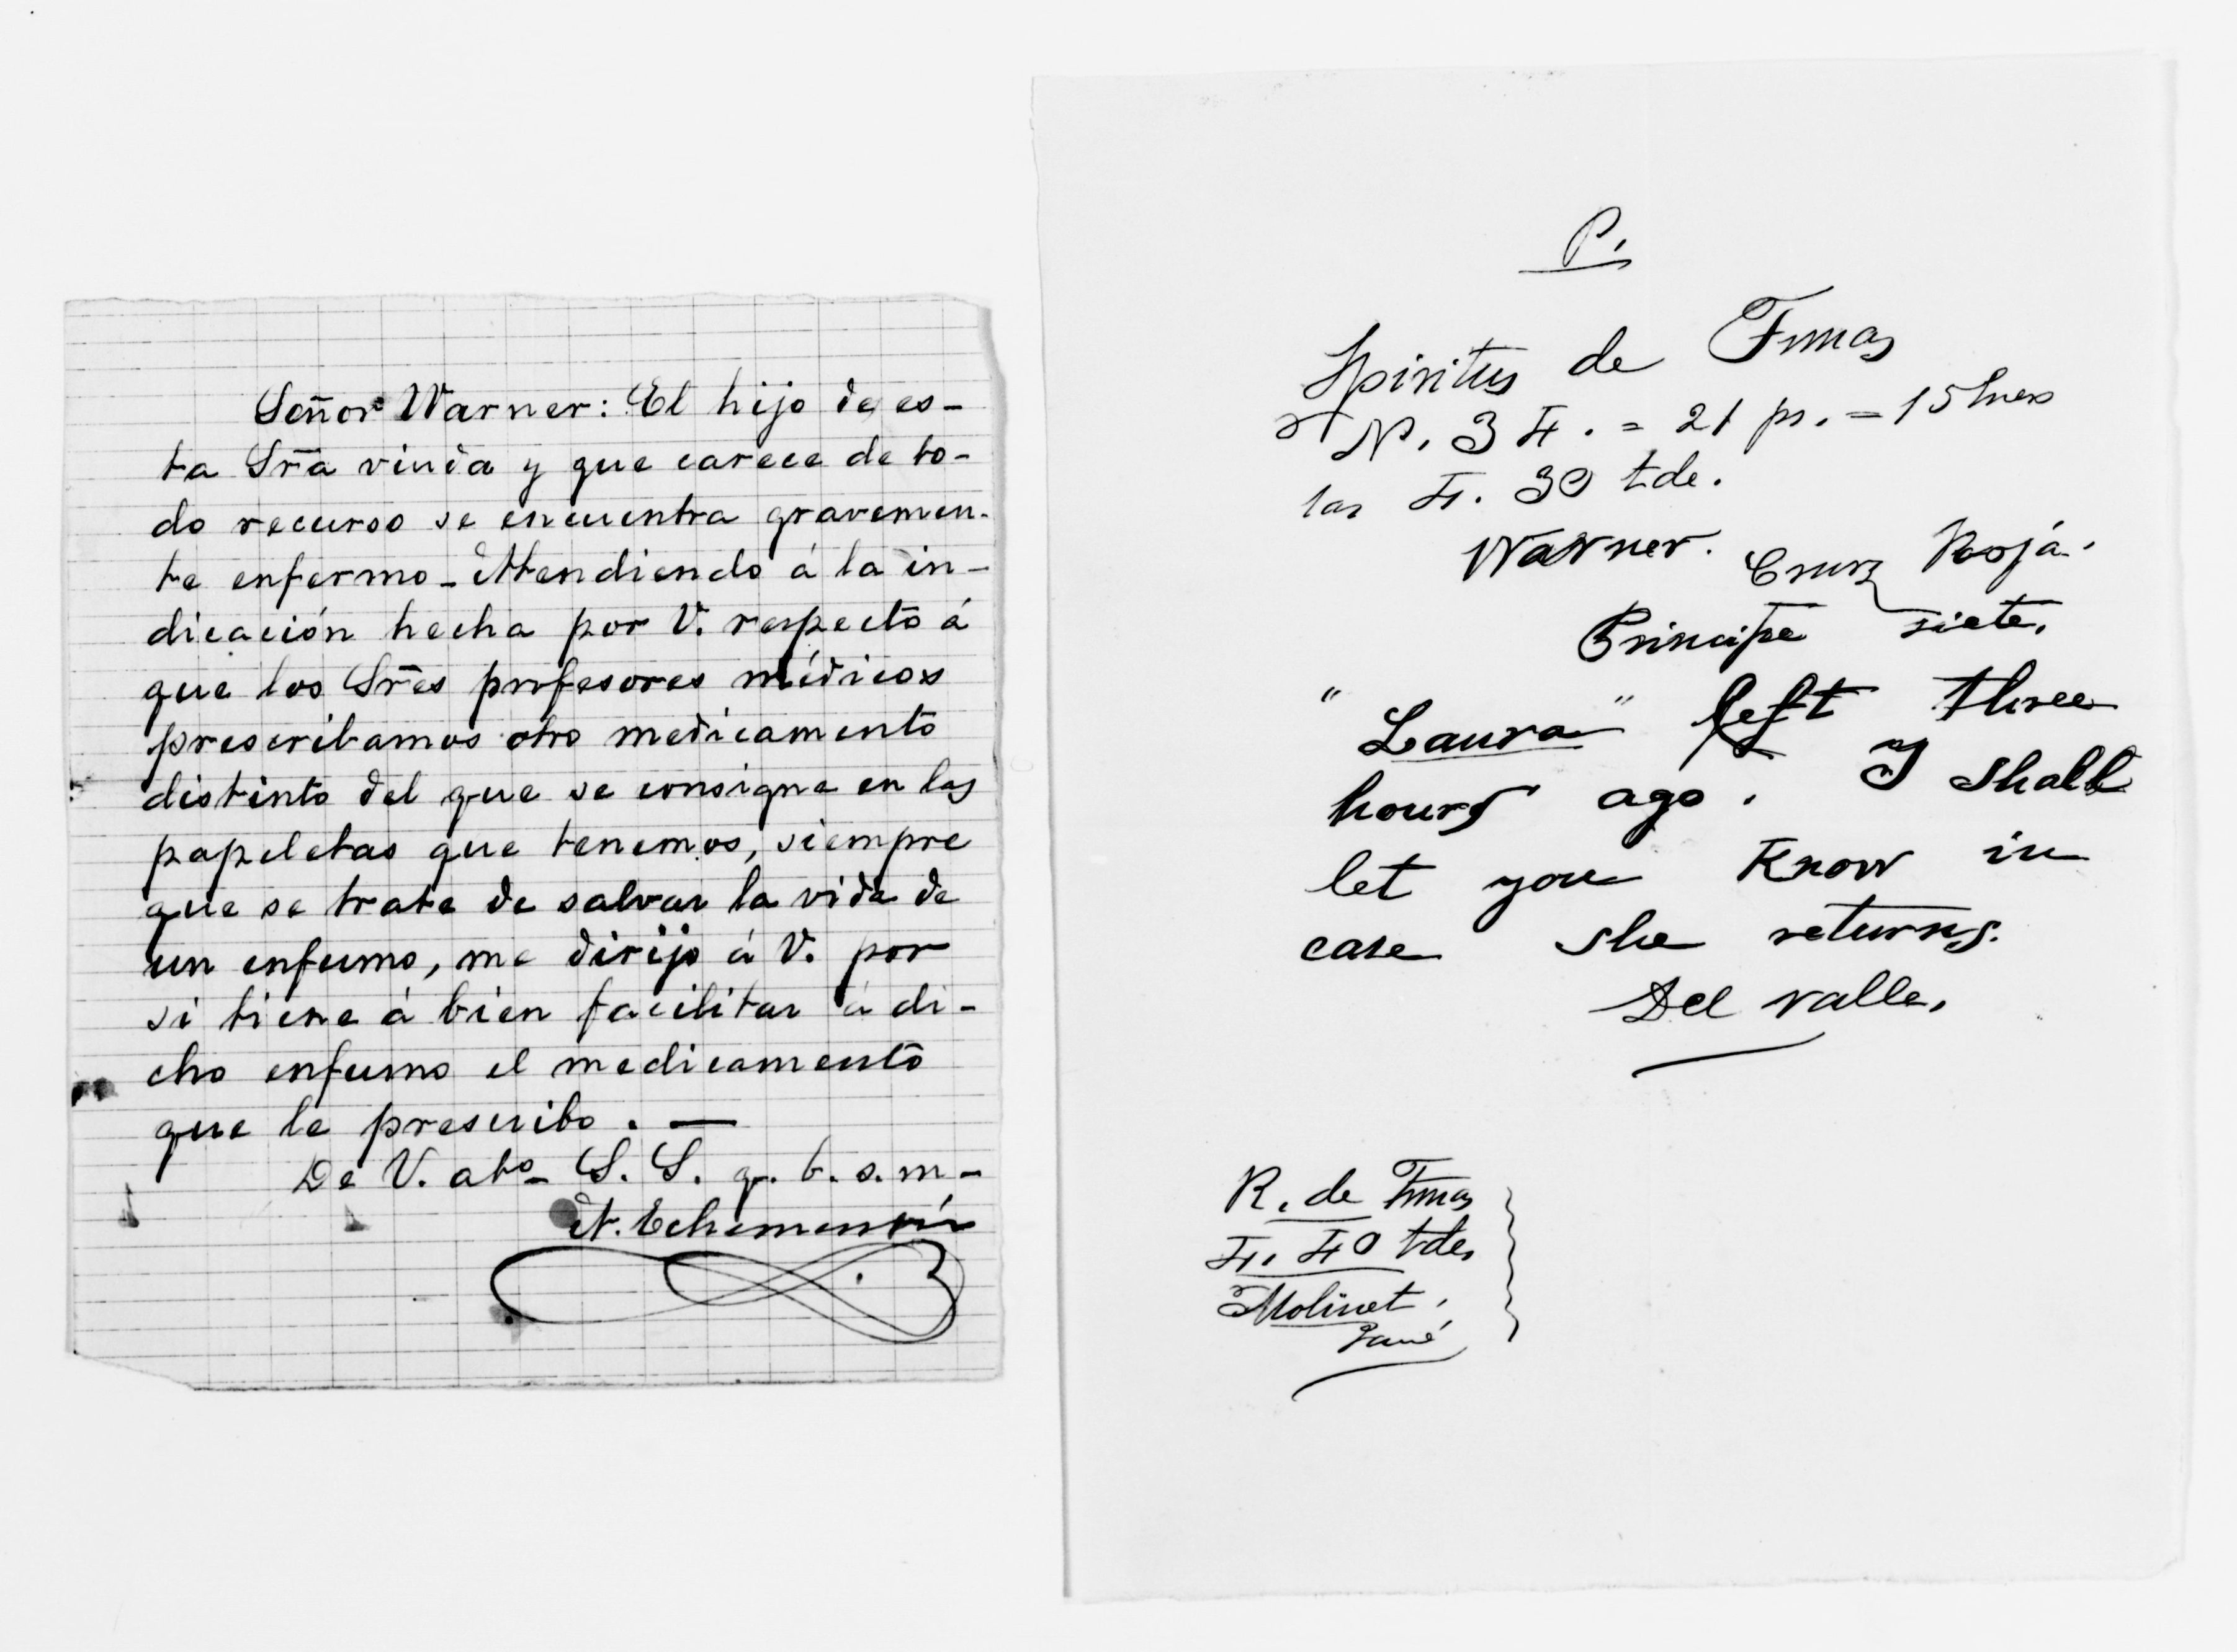 Señor Warner: El hijo de es-
ta Sra viuda y que carece de to-
do recurso se encuentra gravemen-
te enfermo - Atendiendo á la in-
dicación hecha por V. respecto á
que los Sres profesores médicos
prescribamos otro medicamento
distinto del que se consigna en las
papeletas que tenemos, siempre
que se trate de salvar la vida de
un enfermo, me dirijo á V. por
si tiene á bien facilitar á di-
cho enfermo el medicamento
que le prescribo. —
De V. atº S. S. q. b. s. m -
P.
Spiritus de Tunas
N. 34. = 21 ps. = 15
las 4. 30 tde.
Warner. Cruz Roja.
Principe siete.
"Laura" left three
hours ago. I shall
let you know in
case she returns.
Del valle.
R. de Tunas
4. 40 tde,
Molinet.